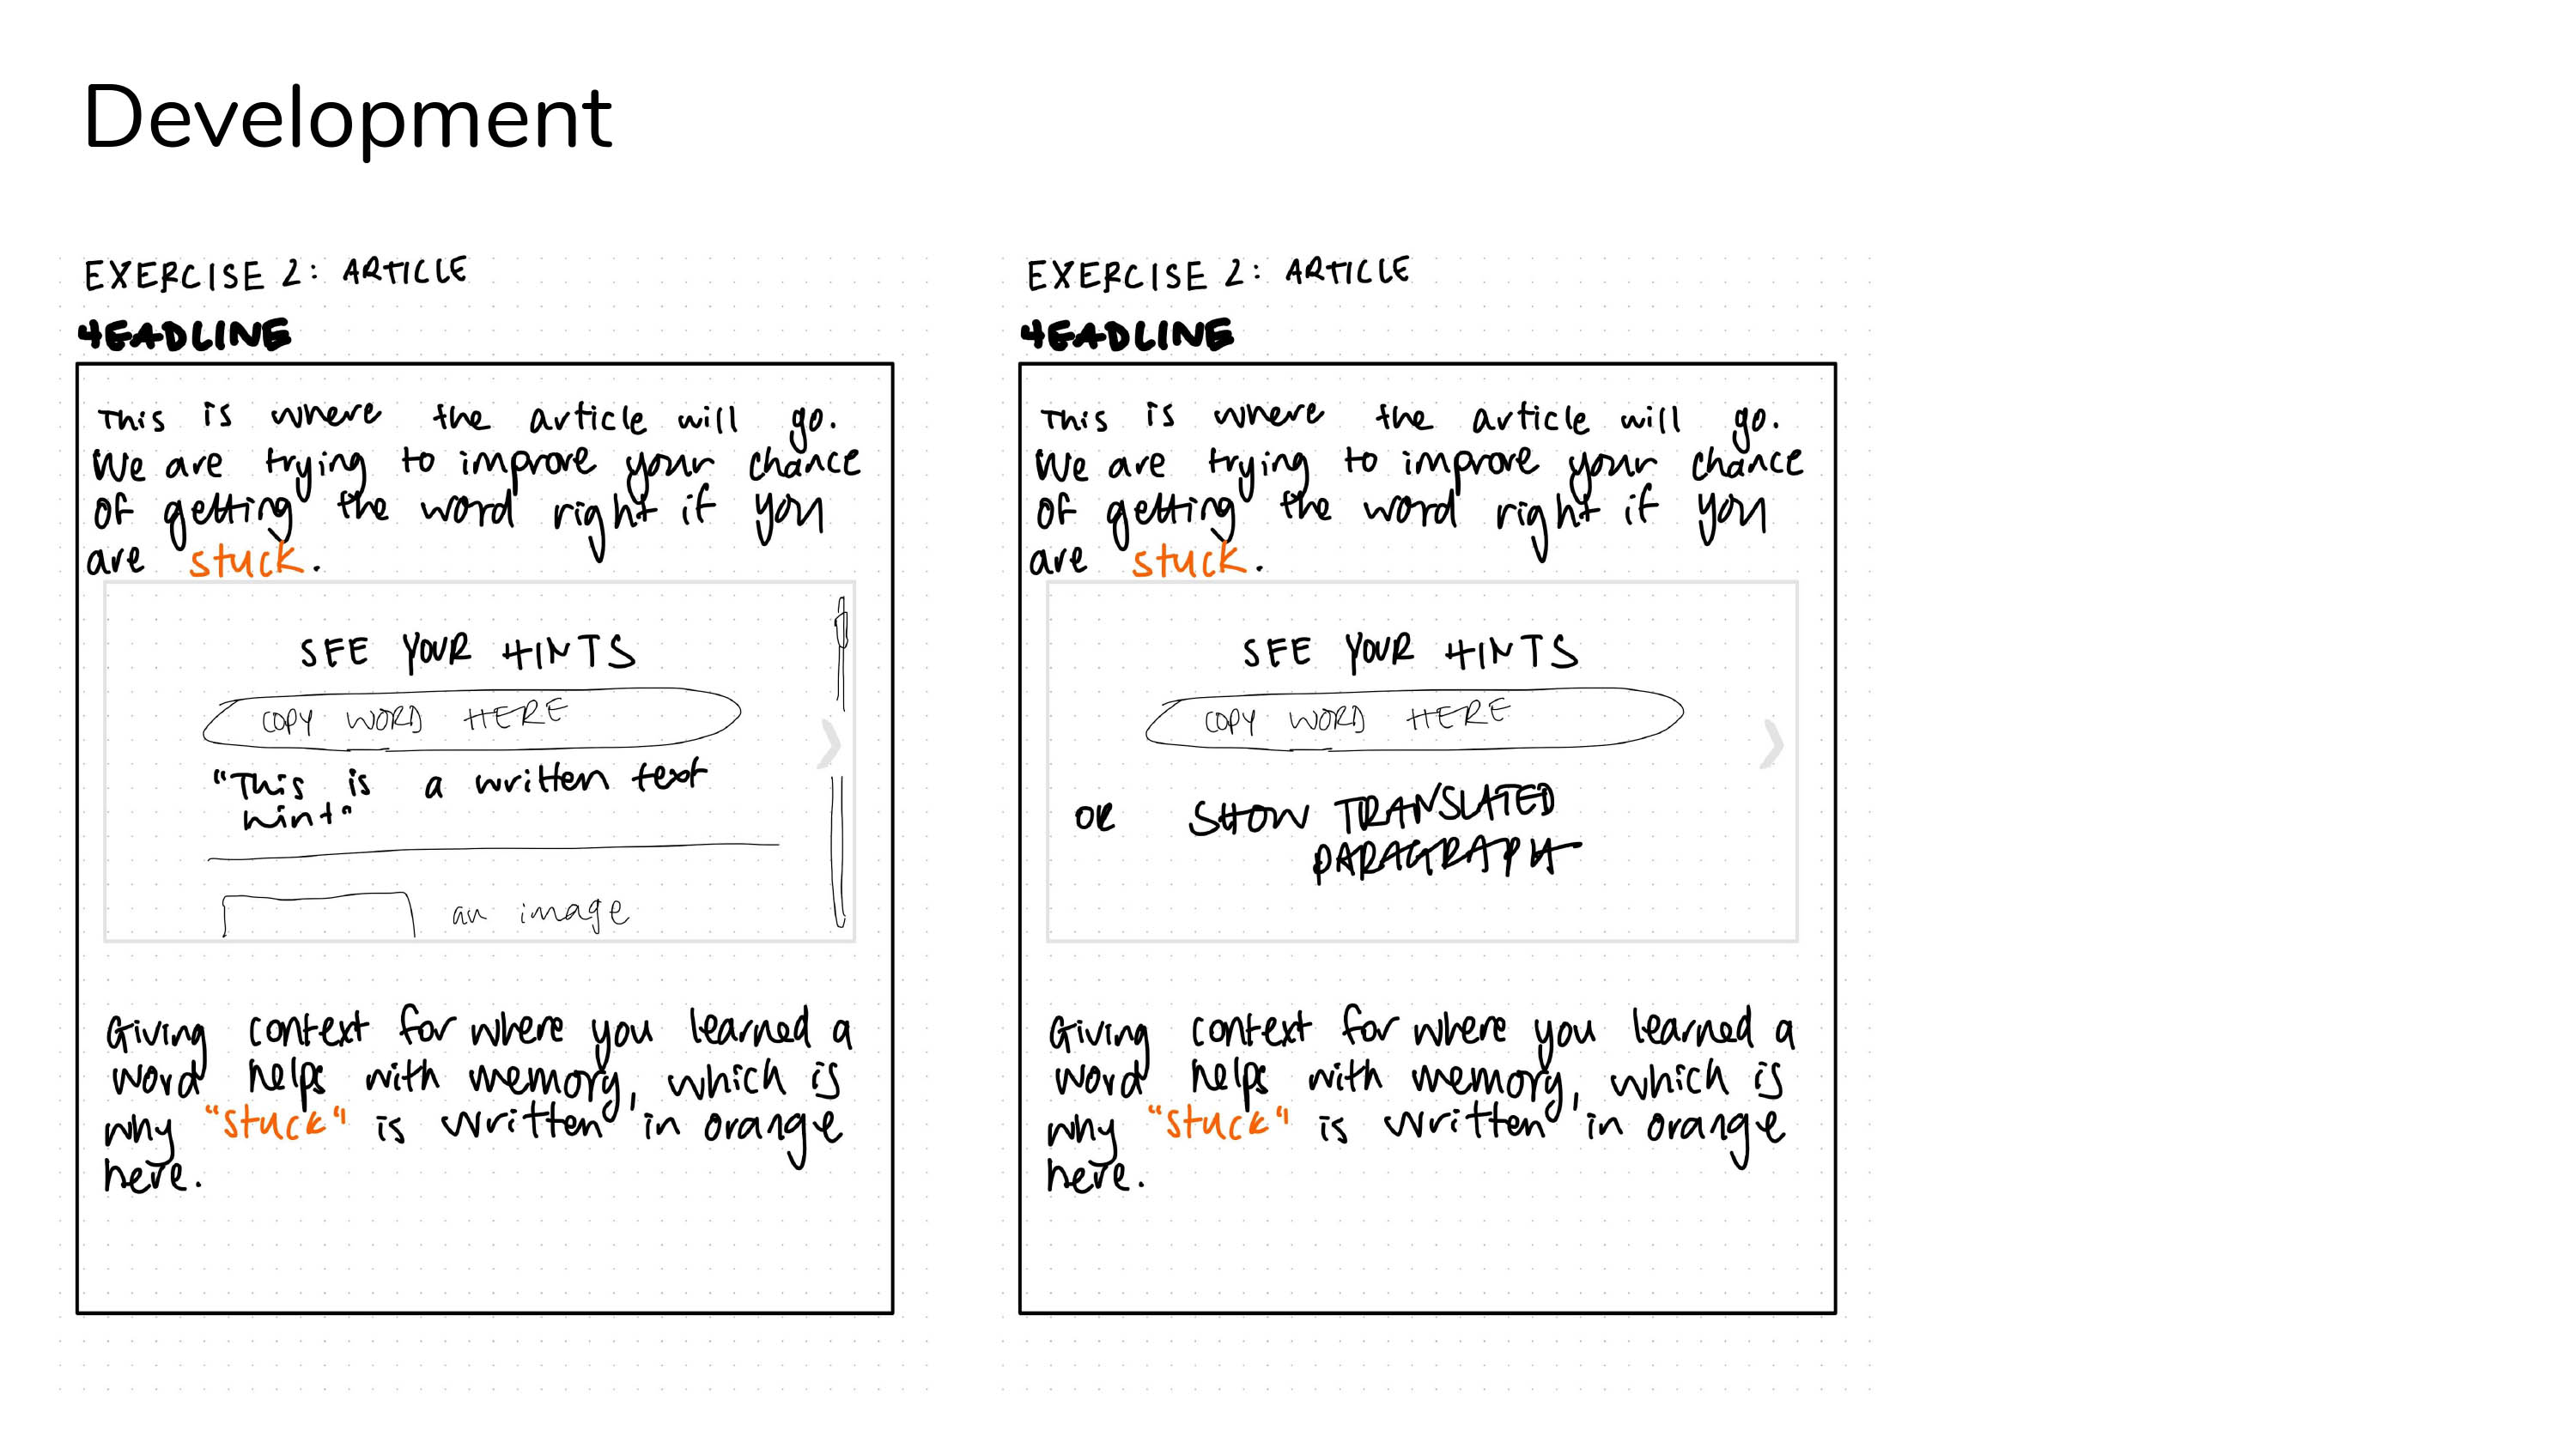 Development
EXERCISE 2: ARTICLE
HEADLINE
This is where the article will go.
We are trying to improve your chance
of getting the word right if you
are stuck.
SEE YOUR HINTS
COPY WORD HERE
"This is a written text
hint"
an image
Giving context for where you learned a
word helps with memory, which is
why "stuck" is written in orange
here.
EXERCISE 2: ARTICLE
HEADLINE
This is where the article will go.
We are trying to improve your chance
of getting the word right if you
are stuck.
SEE YOUR HINTS
COPY WORD HERE
OR SHOW TRANSLATED
PARAGRAPH
Giving context for where you learned a
word helps with memory, which is
why "stuck" is written in orange
here.